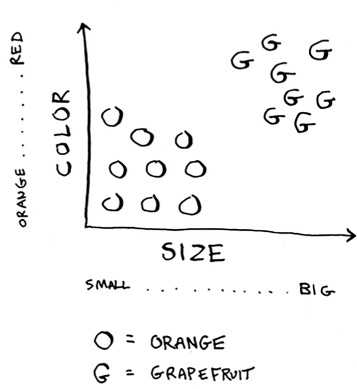 ORANGE ........ RED
COLOR
G G G
G G
G G
G G
O
O O
O O O
O O O
SIZE
SMALL ........... BIG
O = ORANGE
G = GRAPEFRUIT